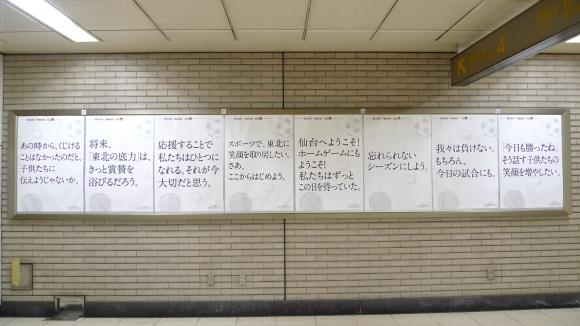 4
あの時から、くじける
ことはなかったのだと、
子供たちに
伝えようじゃないか。
将来、
「東北の底力」は、
きっと賞賛を
浴びるだろう。
応援することで
私たちはひとつに
なれる。それが今
大切だと思う。
スポーツで、東北に
笑顔を取り戻したい。
さあ、
ここからはじめよう。
仙台へようこそ!
ホームゲームにも
ようこそ!
私たちはずっと
この日を待っていた。
忘れられない
シーズンにしよう。
我々は負けない。
もちろん、
今日の試合にも。
「今日も勝ったね」
そう話す子供たちの
笑顔を増やしたい。